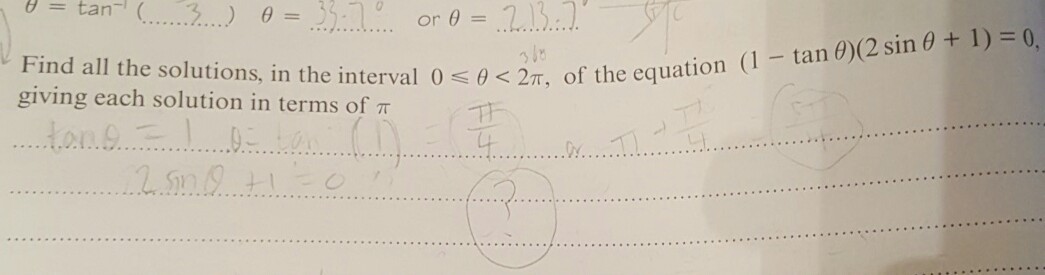 θ = tan⁻¹ (......3.....) θ = 33.7° or θ = 213.7°
360
Find all the solutions, in the interval 0 ⩽ θ < 2π, of the equation (1 − tan θ)(2 sin θ + 1) = 0,
giving each solution in terms of π
tanθ = 1 θ = tan (1) = π/4 or π + π/4 = 5π/4
2 sin θ + 1 = 0
?